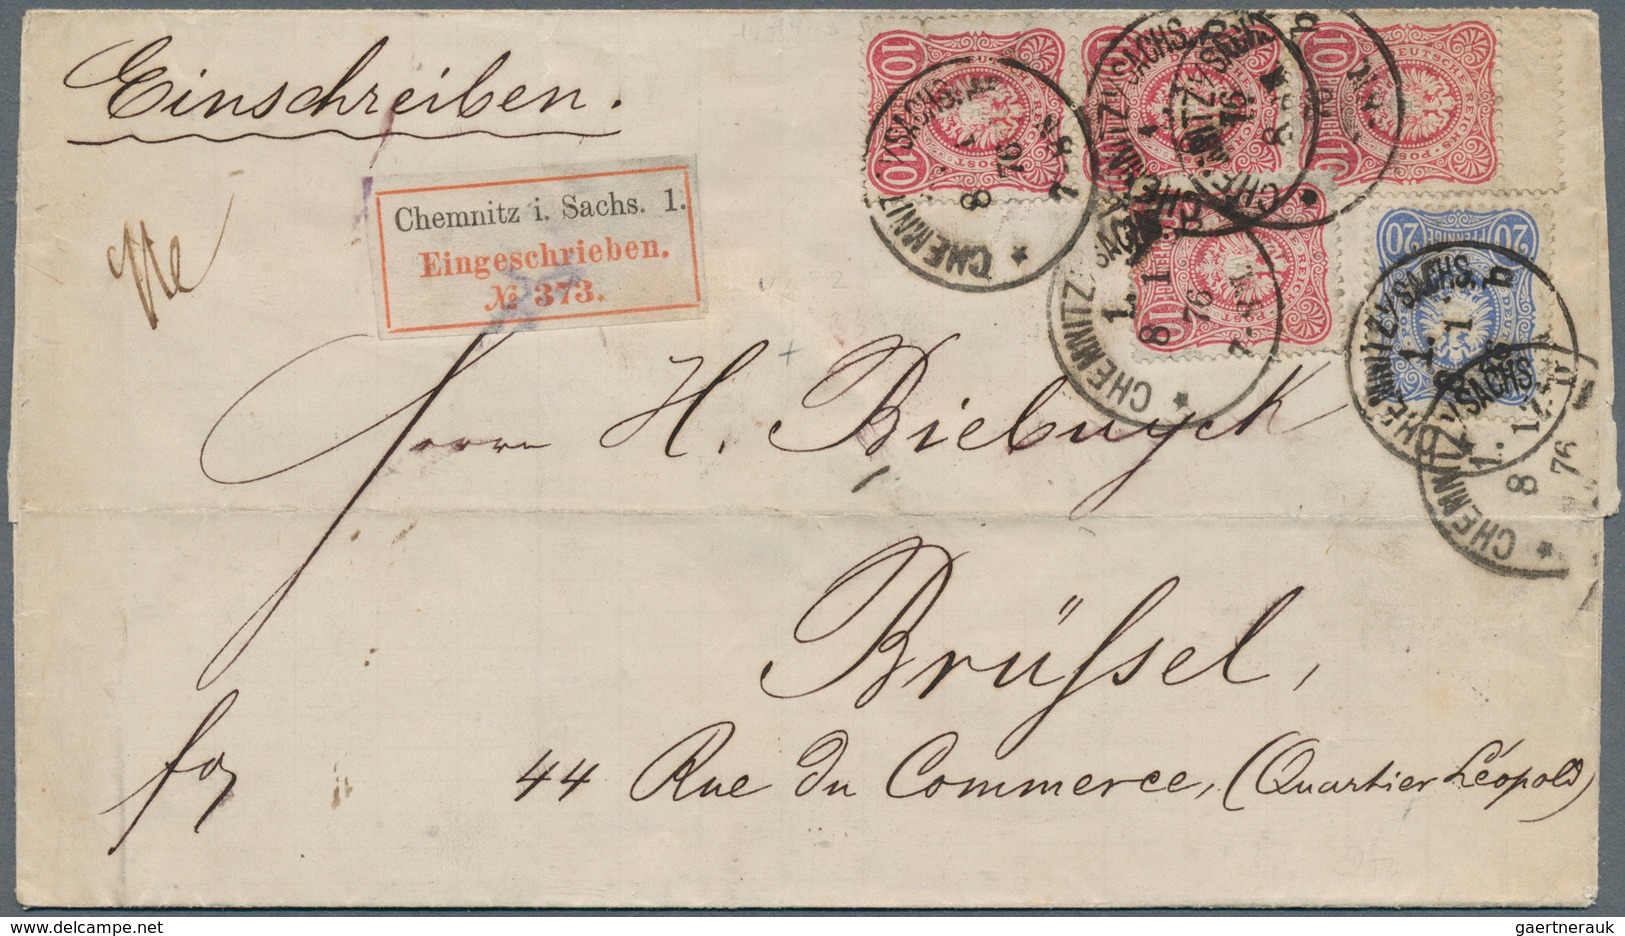 Einschreiben.
Chemnitz i. Sachs. 1.
Eingeschrieben.
№ 373.
10 10
10
10
20 PFENNIG 20
DEUTSCHE REICHS-POST
CHEMNITZ 1/SACHS.
8 1 76
CHEMNITZ 1/SACHS.
8 1 76
CHEMNITZ 1/SACHS.
CHEMNITZ 1/SACHS.
8 76
Herrn H. Biebuyck
Brüssel,
44 Rue du Commerce, (Quartier Léopold)
fr
gaertnerauk@